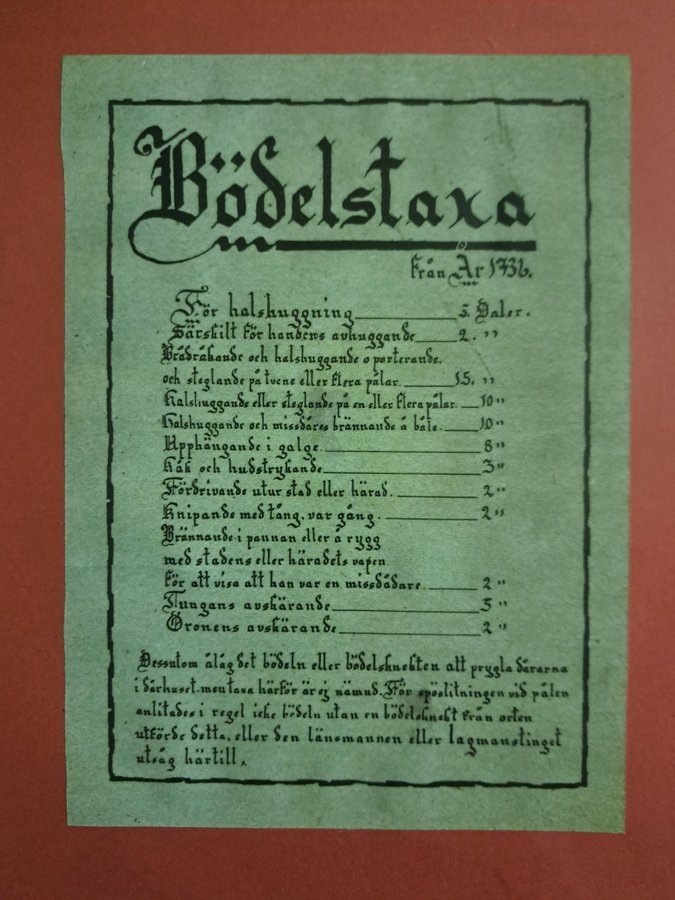 Bödelstaxa
från År 1736.
För halshuggning 5. Daler.
Särskilt för handens avhuggande 2. "
Brådråkande och halshuggande o parterande.
och steglande på tvene eller flera pålar. 15. "
Halshuggande eller steglande på en eller flera pålar. 10 "
Halshuggande och missdåres brännande å båle. 10 "
Upphängande i galge. 8 "
Kåk och hudstrykande 3 "
Fördrivande utur stad eller härad. 2 "
Knipande med tång, var gång. 2 "
Brännande i pannan eller å rygg
med stadens eller häradets vapen
för att visa att han var en missdådare. 2 "
Tungans avskärande 5 "
Öronens avskärande 2 "
Dessutom ålåg det bödeln eller bödelsknekten att prygla dårarna
i dårhuset. men taxa härför är ej nämnd. För spöslitningen vid pålen
anlitades i regel icke bödeln utan en bödelsknekt från orten
utförde detta, eller den länsmannen eller lagmanstinget
utsåg härtill.